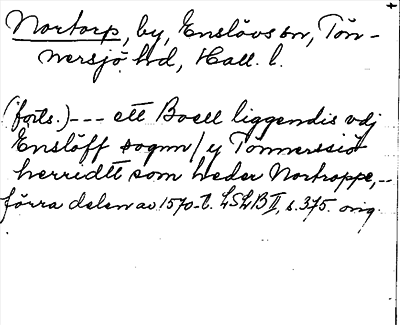 Nortorp, by, Enslövs sn, Tön-
nersjö hd, Hall. l.
(forts.) --- ett Boell liggendis vdj
Enslöff sognn / y Tönnerssiö
herredtt som heder Nortroppe,--
förra delen av 1570-t. LSLB II, s. 375. orig.